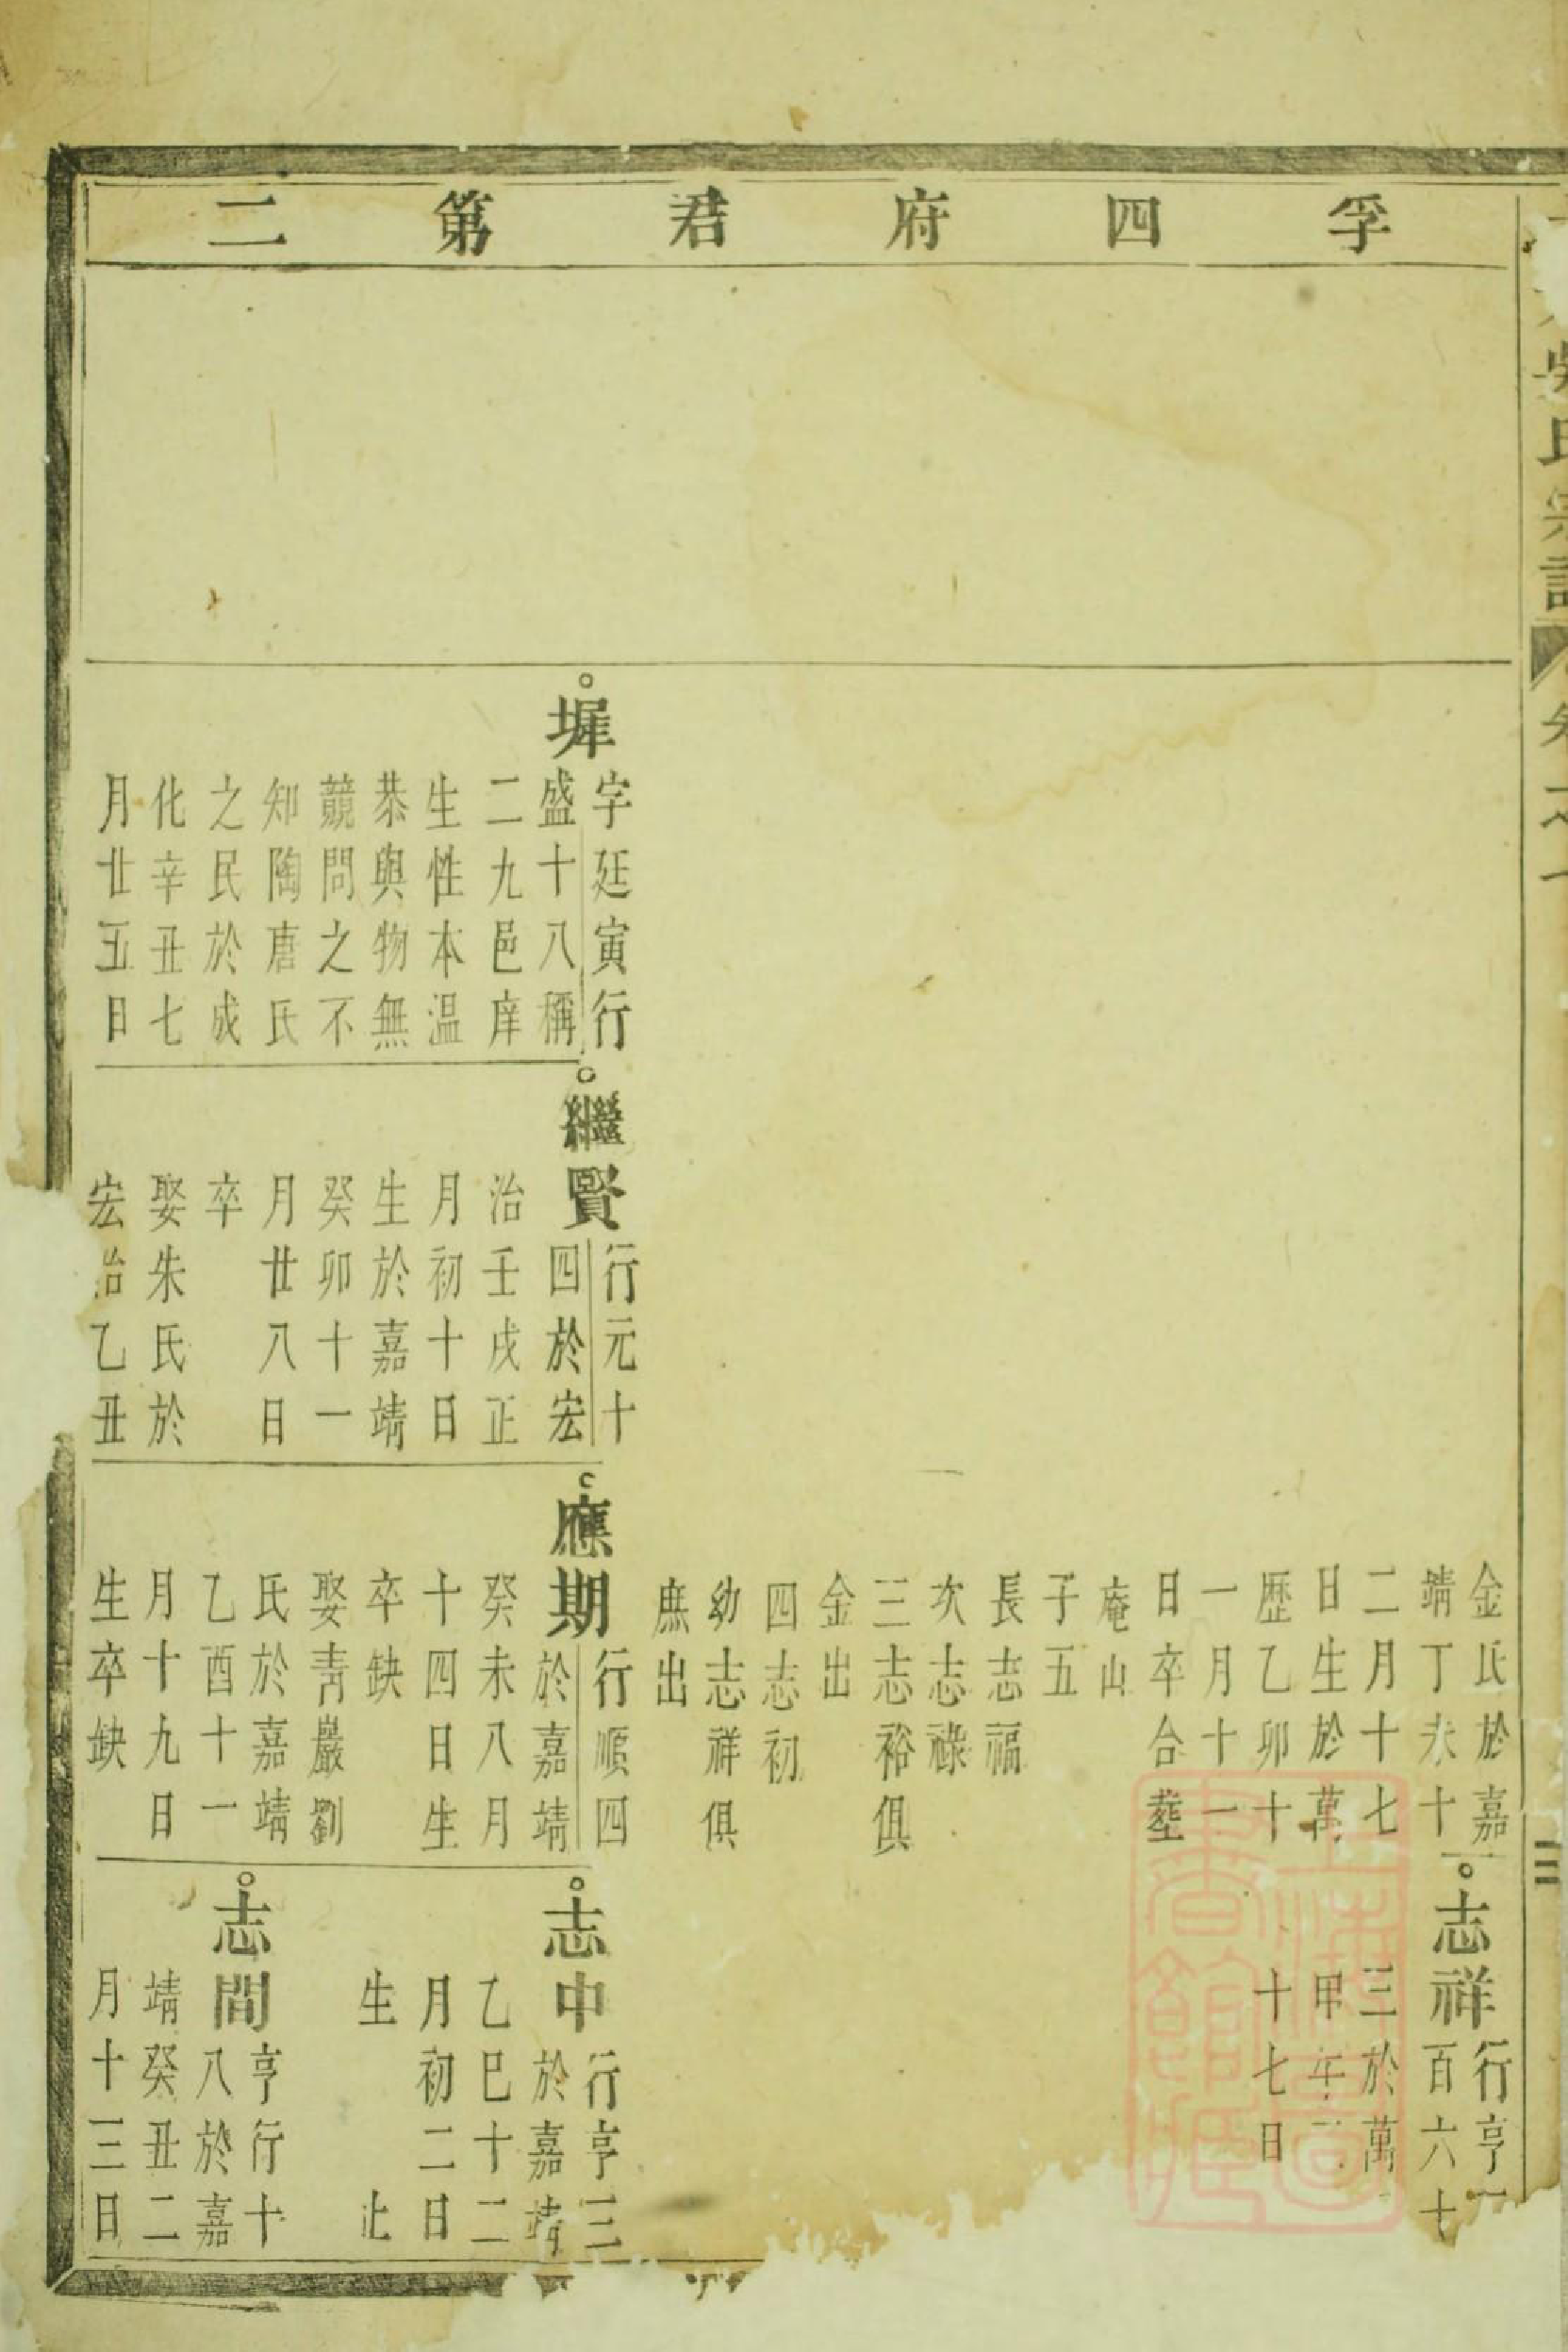 孚四府君第二
吳氏宗譜
金氏於嘉
靖丁未十
二月十七
日生於萬
歷乙卯十
一月十一
日卒合塟
庵山
子五
長志福
次志祿
三志裕俱
金出
四志初
幼志祥俱
庶出
志祥
行亨一
百六十
三於萬
甲午
十七日
墀
字廷寅行
盛十八稱
二九邑庠
生性本温
恭與物無
競問之不
知陶唐氏
之民於成
化辛丑七
月廿五日
繼賢
行元十
四於宏
治壬戌正
月初十日
生於嘉靖
癸卯十一
月廿八日
卒
娶朱氏於
宏治乙丑
應期
行順四
於嘉靖
癸未八月
十四日生
卒缺
娶靑巖劉
氏於嘉靖
乙酉十一
月十九日
生卒缺
志中
行亨三
於嘉靖
乙巳十二
月初二日
生 止
志間
亨行十
八於嘉
靖癸丑二
月十三日
三
上海圖書館藏